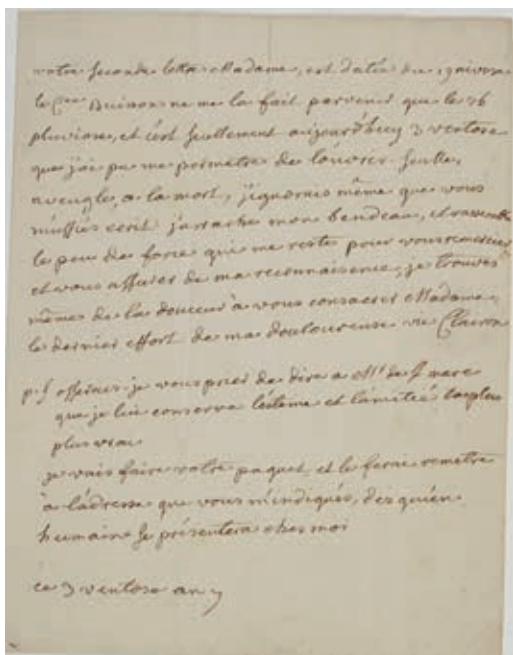 votre seconde lettre Madame, est datée du 19 nivose
le C.en Buisson ne me la fait parvenir que le 26
pluviose, et c'est seullement aujourd'huy 3 ventose
que j'ai pu me permetre de l'ouvrir. seulle,
aveugle, a la mort, j'ignorais même que vous
m'ussiés ecrit j'arrache mon bendeau, et rassemble
le peu de force qui me reste pour vous remercier
et vous assurer de ma reconnaisence, je trouves
même de la douceur à vous consacrer Madame,
le dernier effort de ma douloureuse vie Clairon
p.s oserais-je vous prier de dire a Mr de st marc
que je lui conserve l'estime et l'amitié la plus
plus vrai
je vais faire votre paquet et le ferai remetre
à l'adresse que vous m'indiqués, des qu'un
humain se présentera ches moi
ce 3 ventose an 7